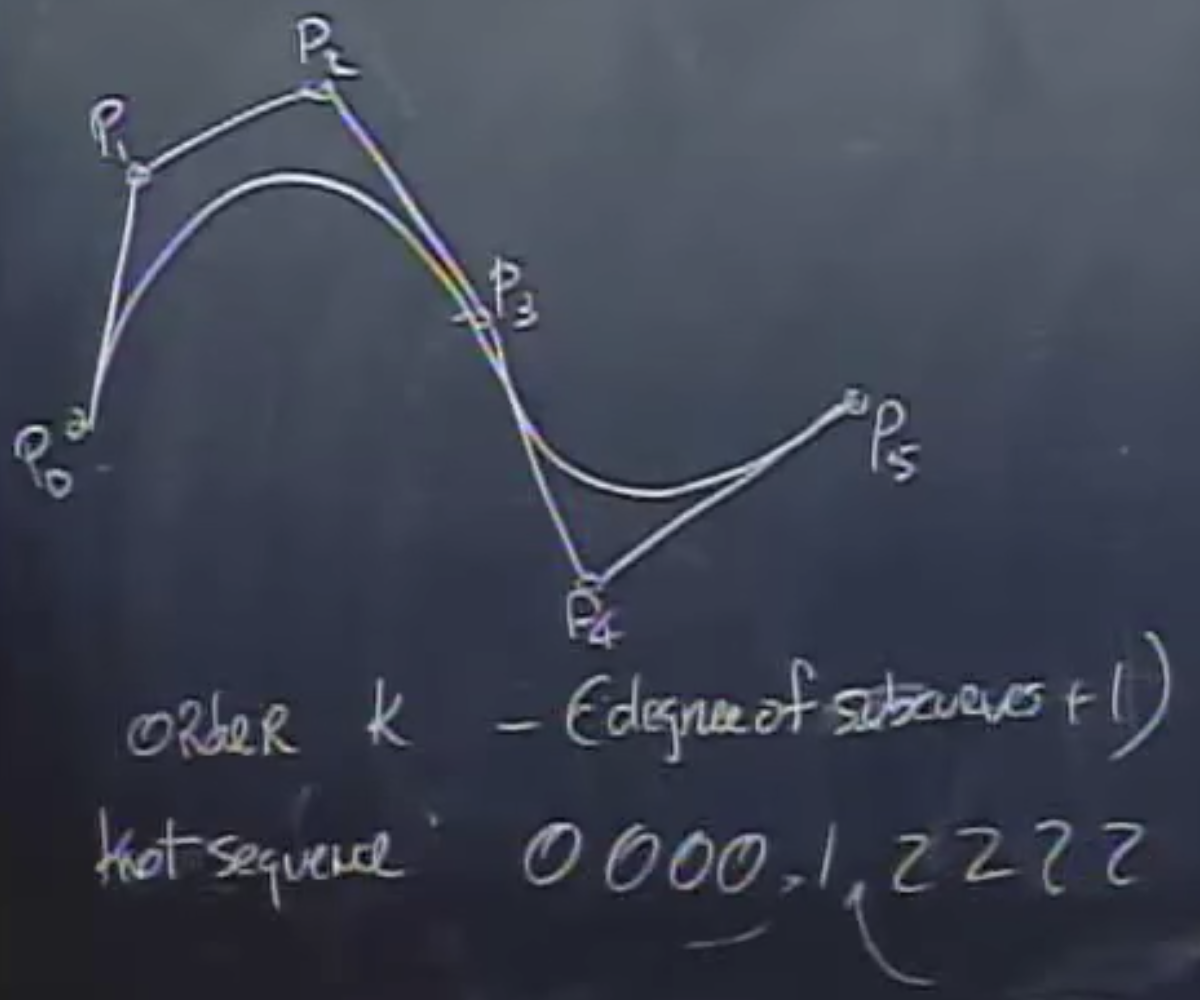 P2
P1
P3
P0
P5
P4
ORDER K - (degree of subcurves + 1)
Knot sequence 0 0 0 0, 1, 2 2 2 2